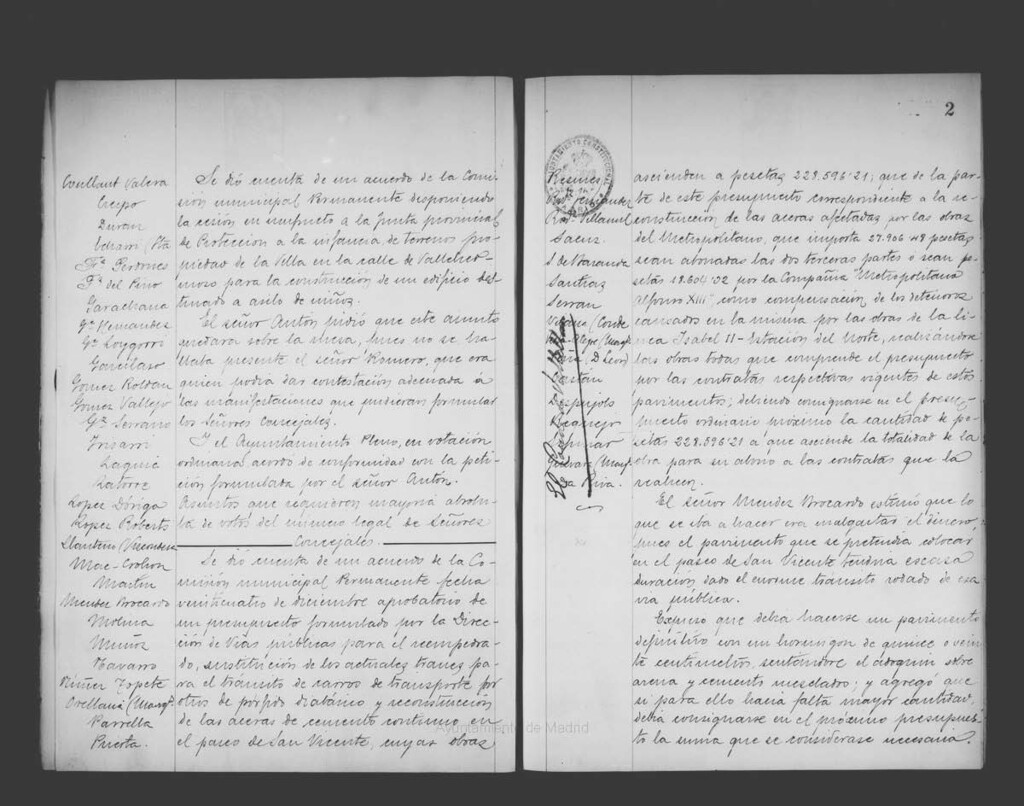 Crespo
Durán
Fz. Perdones
Fz. del Pino
Garachana
Gz. Hernandez
Garcilaso
Gomez Roldan
Gomez Vallejo
Gz. Serrano
Irisarri
Laguia
Latorre
Lopez Dóriga
Lopez Roberts
Llantero (Vizcondesa
Mac-Crohon
Martin
Mendez Brocardo
Molina
Muñoz
Navarro
Núñez Topete
Orellana (Marq.
Parrella
Puerta.
Se dió cuenta de un acuerdo de la Comi-
sión municipal Permanente disponiendo
la cesión en usufructo a la Junta provincial
de Protección a la infancia de terrenos pro-
piedad de la Villa en la calle de Vallehermoso
para la construcción de un edificio des-
tinado a asilo de niños.
El señor Antón pidió que este asunto
quedara sobre la mesa, pues no se ha-
llaba presente el señor Romero, que era
quien podia dar contestación adecuada á
las manifestaciones que pudieran formular
los Señores Concejales.
Y el Ayuntamiento Pleno, en votación
ordinaria, acordó de conformidad con la peti-
ción formulada por el señor Antón.
Asuntos que requieren mayoria absolu-
ta de votos del número legal de Señores
Concejales.
Se dió cuenta de un acuerdo de la Co-
misión municipal Permanente fecha
veinticuatro de diciembre aprobatorio de
un presupuesto formulado por la Direc-
ción de Vias públicas para el reempedra-
do, sustitución de los actuales tranes pa-
ra el tránsito de carros de transporte por
otros de pórfido diabánico y reconstrucción
de las aceras de cemento continuo en
el paseo de San Vicente, cuyas obras
Ayuntamiento de Madrid
2
Resines
Rod. Villamil
Sáenz
S. de Baranda
Santias
Serran
Despujols
La Riva.
ascienden a pesetas 228.596'21; que de la par-
te de este presupuesto correspondiente a la re-
construcción de las aceras afectadas por las obras
del Metropolitano, que importa 27.906'48 pesetas
sean abonadas las dos terceras partes o sean pe-
setas 18.604'32 por la Compañia Metropolitano
Alfonso XIII, como compensación de los deterioros
causados en la misma por las obras de la li-
nea Isabel II-Estación del Norte, realizándose
las obras todas que comprende el presupuesto
por las contratas respectivas vigentes de estos
pavimentos; debiendo consignarse en el presu-
puesto ordinario próximo la cantidad de pe-
setas 228.596'21 a que asciende la totalidad de la
obra para su abono a las contratas que la
realicen.
El señor Mendez Brocardo estimó que lo
que se iba a hacer era malgastar el dinero,
pues el pavimento que se pretendia colocar
en el paseo de San Vicente tendria escasa
duración dado el enorme tránsito rodado de esa
via pública.
Expuso que debia hacerse un pavimento
definitivo con un hormigón de quince o vein-
te centimetros, sentandose el adoquin sobre
arena y cemento mezclados; y agregó que
si para ello hacia falta mayor cantidad,
debia consignarse en el próximo presupues-
to la suma que se considerase necesaria.